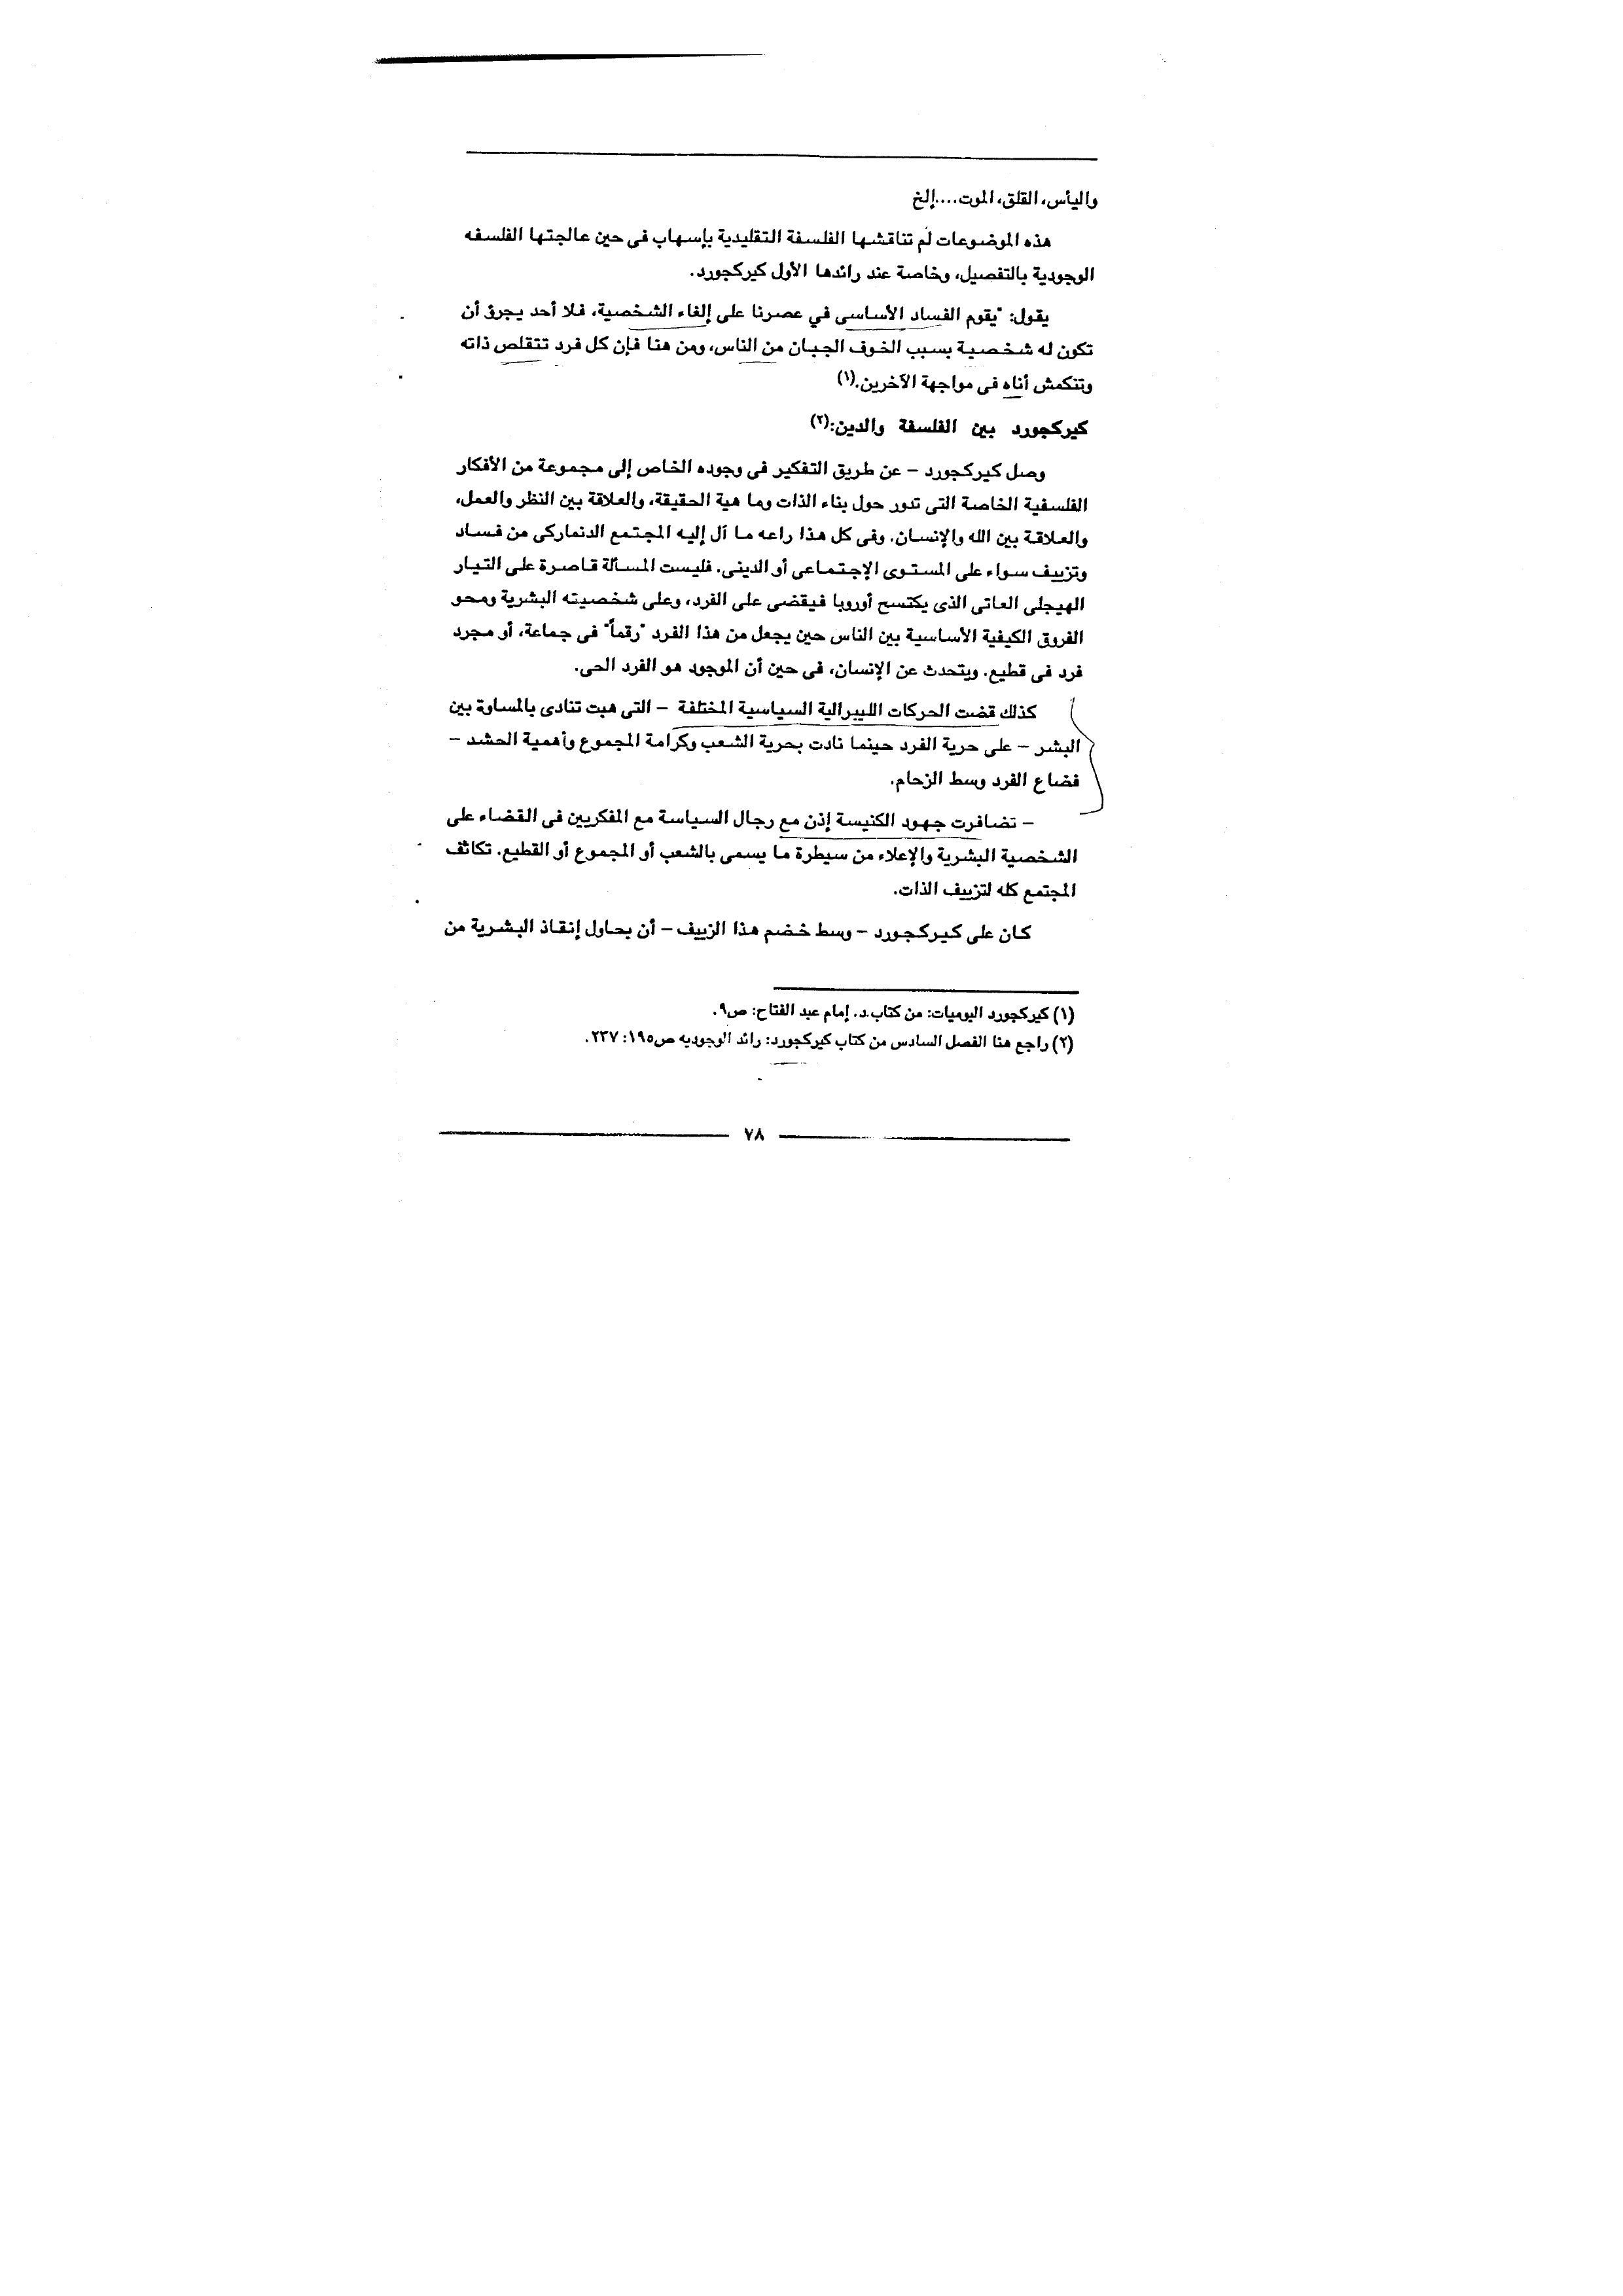 واليأس، القلق، الموت....إلخ
هذه الموضوعات لم تناقشها الفلسفة التقليدية بإسهاب فى حين عالجتها الفلسفه
الوجودية بالتفصيل، وخاصة عند رائدها الأول كيركجورد.
يقول: "يقوم الفساد الأساسى في عصرنا على إلغاء الشخصية، فلا أحد يجرؤ أن
تكون له شخصية بسبب الخوف الجبان من الناس، ومن هنا فإن كل فرد تتقلص ذاته
وتنكمش أناه فى مواجهة الآخرين.(١)
كيركجورد بين الفلسفة والدين:(٢)
وصل كيركجورد – عن طريق التفكير فى وجوده الخاص إلى مجموعة من الأفكار
الفلسفية الخاصة التى تدور حول بناء الذات وما هية الحقيقة، والعلاقة بين النظر والعمل،
والعلاقة بين الله والإنسان. وفى كل هذا راعه ما آل إليه المجتمع الدنماركى من فساد
وتزييف سواء على المستوى الإجتماعى أو الدينى. فليست المسألة قاصرة على التيار
الهيجلى العاتى الذى يكتسح أوروبا فيقضى على الفرد، وعلى شخصيته البشرية ومحو
الفروق الكيفية الأساسية بين الناس حين يجعل من هذا الفرد "رقماً" فى جماعة، أو مجرد
فرد فى قطيع. ويتحدث عن الإنسان، فى حين أن الموجود هو الفرد الحى.
كذلك قضت الحركات الليبرالية السياسية المختلفة – التى هبت تنادى بالمساوة بين
البشر – على حرية الفرد حينما نادت بحرية الشعب وكرامة المجموع وأهمية الحشد –
فضاع الفرد وسط الزحام.
– تضافرت جهود الكنيسة إذن مع رجال السياسة مع المفكريين فى القضاء على
الشخصية البشرية والإعلاء من سيطرة ما يسمى بالشعب أو المجموع أو القطيع. تكاثف
المجتمع كله لتزييف الذات.
كان على كيركجورد – وسط خضم هذا الزييف – أن يحاول إنقاذ البشرية من
(١) كيركجورد اليوميات: من كتاب.د. إمام عبد الفتاح: ص٩.
(٢) راجع هنا الفصل السادس من كتاب كيركجورد: رائد الوجوديه ص١٩٥: ٢٣٧.
٧٨